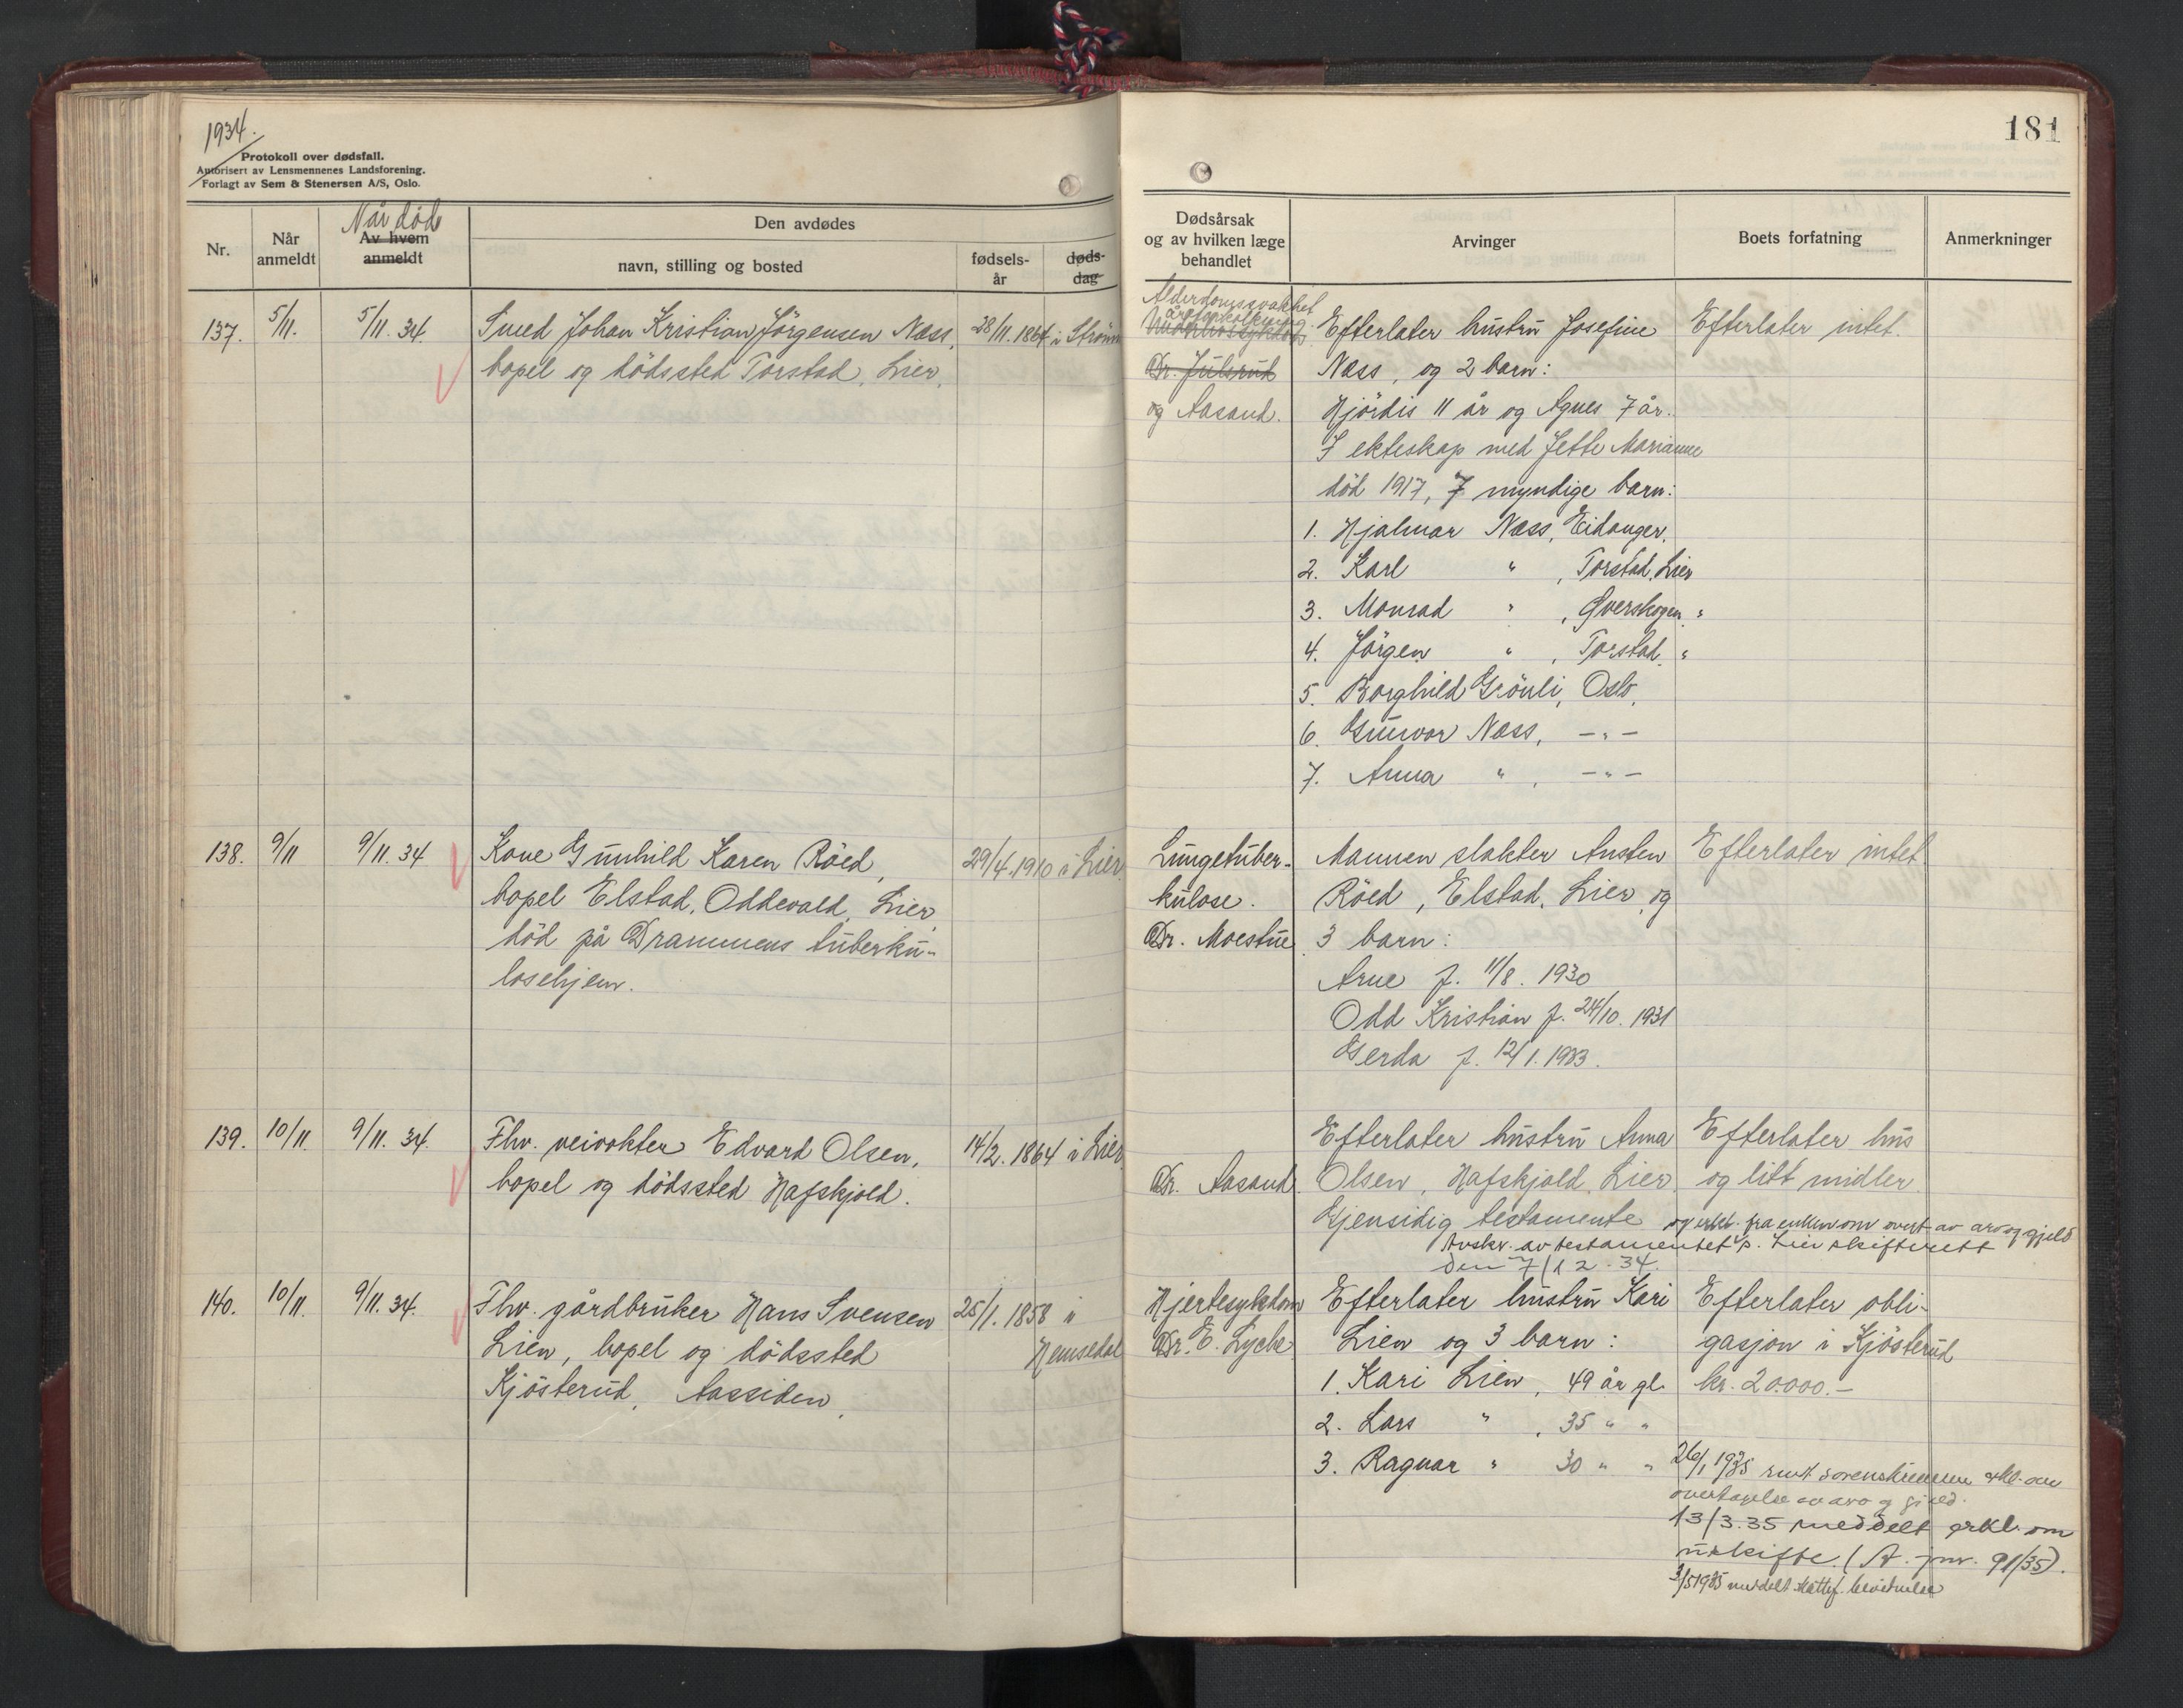 1934.
Protokoll over dødsfall.
Autorisert av Lensmennenes Landsforening.
Forlagt av Sem & Stenersen A/S, Oslo.
181
Nr.
Når anmeldt
Når død
Av hvem anmeldt
Den avdødes
navn, stilling og bosted
fødselsår
dødsdag
Dødsårsak
og av hvilken læge
behandlet
Arvinger
Boets forfatning
Anmerkninger
137. 5/11. 5/11. 34. Smed Johan Kristian Jörgensen Næss, 28/11. 1864 i Strömm
bopel og dödssted Torstad, Lier.
Alderdomssvakhet
åreforkalkning
Dr. Julsrud
og Aasand.
Efterlater hustru Josefine
Næss, og 2 barn:
Hjördis 11 år og Agnes 7 år.
I ekteskap med Jette Marianne
död 1917, 7 myndige barn:
1. Hjalmar Næss, Eidanger.
2. Karl " , Torstad, Lier
3. Monrad " , Överskogen, "
4. Jörgen " , Torstad, "
5. Borghild Grönli, Oslo.
6. Gunvor Næss, - " -
7. Anna " , - " -
Efterlater intet.
138. 9/11 9/11. 34 Kone Gunhild Karen Röed, 29/4. 1910 i Lier
bopel Elstad, Oddevald, Lier,
död på Drammens tuberku-
losehjem.
Lungetuber-
kulose.
Dr. Moestue
Mannen slakter Austen
Röed, Elstad, Lier, og
3 barn:
Arne f. 11/8. 1930
Odd Kristian f. 24/10. 1931
Gerda f. 12/1. 1933.
Efterlater intet
139. 10/11. 9/11. 34. Fhv. veivokter Edvard Olsen, 14/2. 1864 i Lier
bopel og dödssted Hafskjold.
Dr. Aasand.
Efterlater hustru Anna
Olsen, Hafskjold, Lier.
Gjensidig testamente og erkl. fra enken om overt. av arv og gjeld
Avskr. av testamentet s. Lier skifterett
den 7/12. 34.
Efterlater hus
og litt midler.
140. 10/11. 9/11. 34. Fhv. gårdbruker Hans Svensen 25/1. 1858 i
Lien, bopel og dödssted Hemsedal
Kjösterud, Aassiden.
Hjertesykdom
Dr. E. Lyche
Efterlater hustru Kari
Lien og 3 barn:
1. Kari Lien, 49 år gl.
2. Lars " , 35 " "
3. Ragnar " 30 " "
Efterlater obli-
gasjon i Kjösterud
kr. 20.000.-
26/1 1935 sorenskriveren erkl. om
overtagelse av arv og gjeld.
13/3.35 meddelt erkl. om
uskifte. (A. jnr. 91/35).
3/5 1935 meddelt